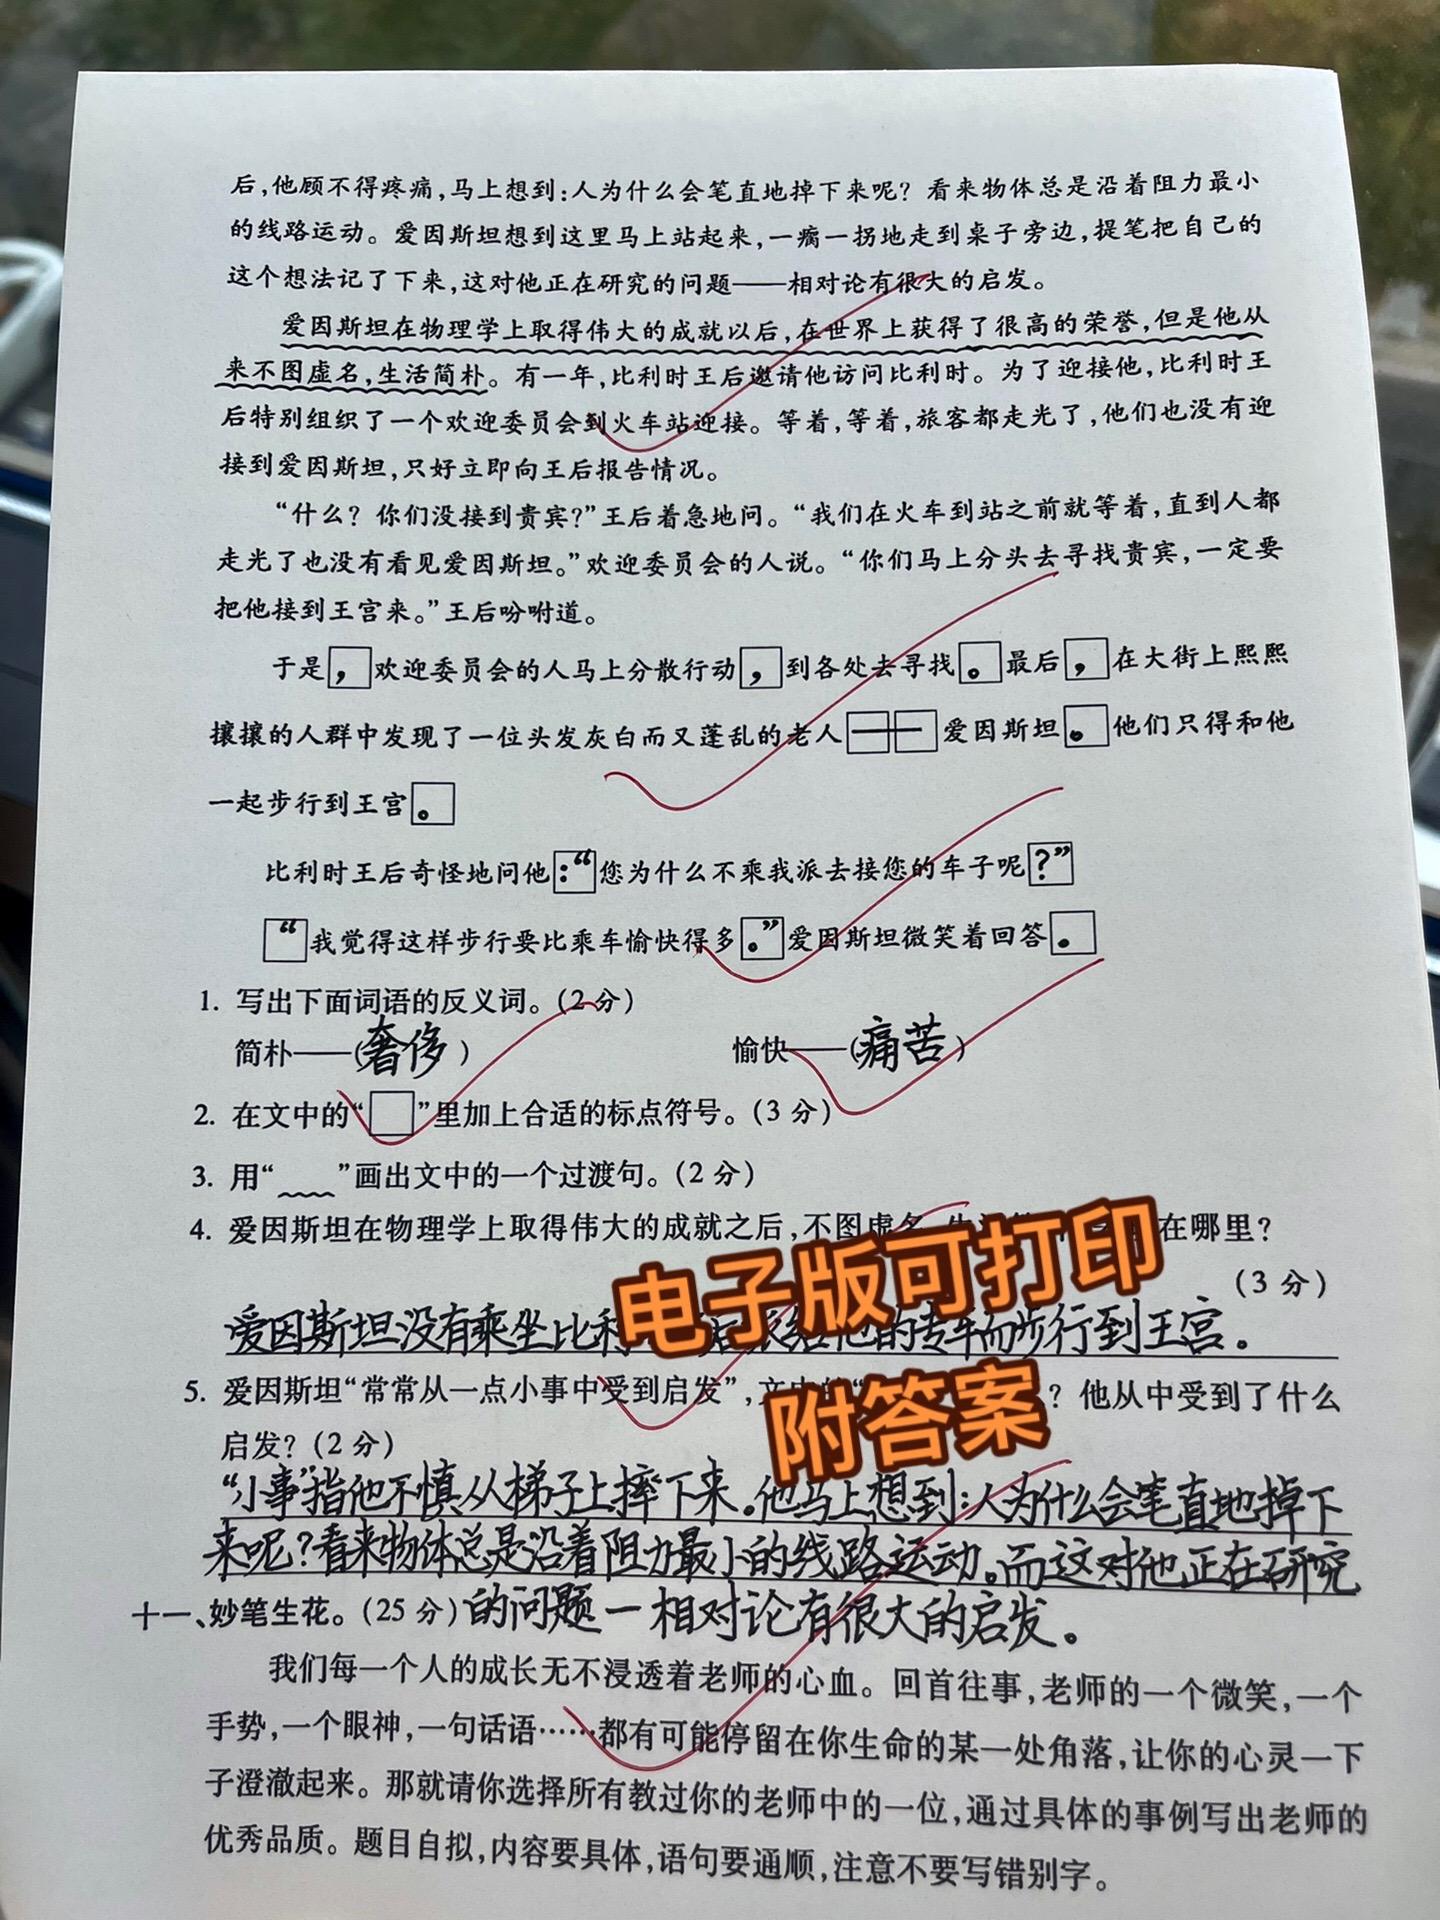 后,他顾不得疼痛,马上想到:人为什么会笔直地掉下来呢?看来物体总是沿着阻力最小
的线路运动。爱因斯坦想到这里马上站起来,一瘸一拐地走到桌子旁边,提笔把自己的
这个想法记了下来,这对他正在研究的问题——相对论有很大的启发。
爱因斯坦在物理学上取得伟大的成就以后,在世界上获得了很高的荣誉,但是他从
来不图虚名,生活简朴。有一年,比利时王后邀请他访问比利时。为了迎接他,比利时王
后特别组织了一个欢迎委员会到火车站迎接。等着,等着,旅客都走光了,他们也没有迎
接到爱因斯坦,只好立即向王后报告情况。
“什么?你们没接到贵宾?”王后着急地问。“我们在火车到站之前就等着,直到人都
走光了也没有看见爱因斯坦。”欢迎委员会的人说。“你们马上分头去寻找贵宾,一定要
把他接到王宫来。”王后吩咐道。
于是,欢迎委员会的人马上分散行动,到各处去寻找。最后,在大街上熙熙
攘攘的人群中发现了一位头发灰白而又蓬乱的老人——爱因斯坦。他们只得和他
一起步行到王宫。
比利时王后奇怪地问他:“您为什么不乘我派去接您的车子呢?”
“我觉得这样步行要比乘车愉快得多。”爱因斯坦微笑着回答。
1. 写出下面词语的反义词。(2分)
简朴——(奢侈) 愉快——(痛苦)
2. 在文中的“□”里加上合适的标点符号。(3分)
3. 用“﹏﹏”画出文中的一个过渡句。(2分)
4. 爱因斯坦在物理学上取得伟大的成就之后,不图虚名 在哪里?
(3分)
电子版可打印
爱因斯坦没有乘坐比利 他的专车而步行到王宫。
附答案
5. 爱因斯坦“常常从一点小事中受到启发”, ?他从中受到了什么
启发?(2分)
“小事”指他不慎从梯子上摔下来。他马上想到:人为什么会笔直地掉下
来呢?看来物体总是沿着阻力最小的线路运动。而这对他正在研究
的问题一相对论有很大的启发。
十一、妙笔生花。(25分)
我们每一个人的成长无不浸透着老师的心血。回首往事,老师的一个微笑,一个
手势,一个眼神,一句话语……都有可能停留在你生命的某一处角落,让你的心灵一下
子澄澈起来。那就请你选择所有教过你的老师中的一位,通过具体的事例写出老师的
优秀品质。题目自拟,内容要具体,语句要通顺,注意不要写错别字。